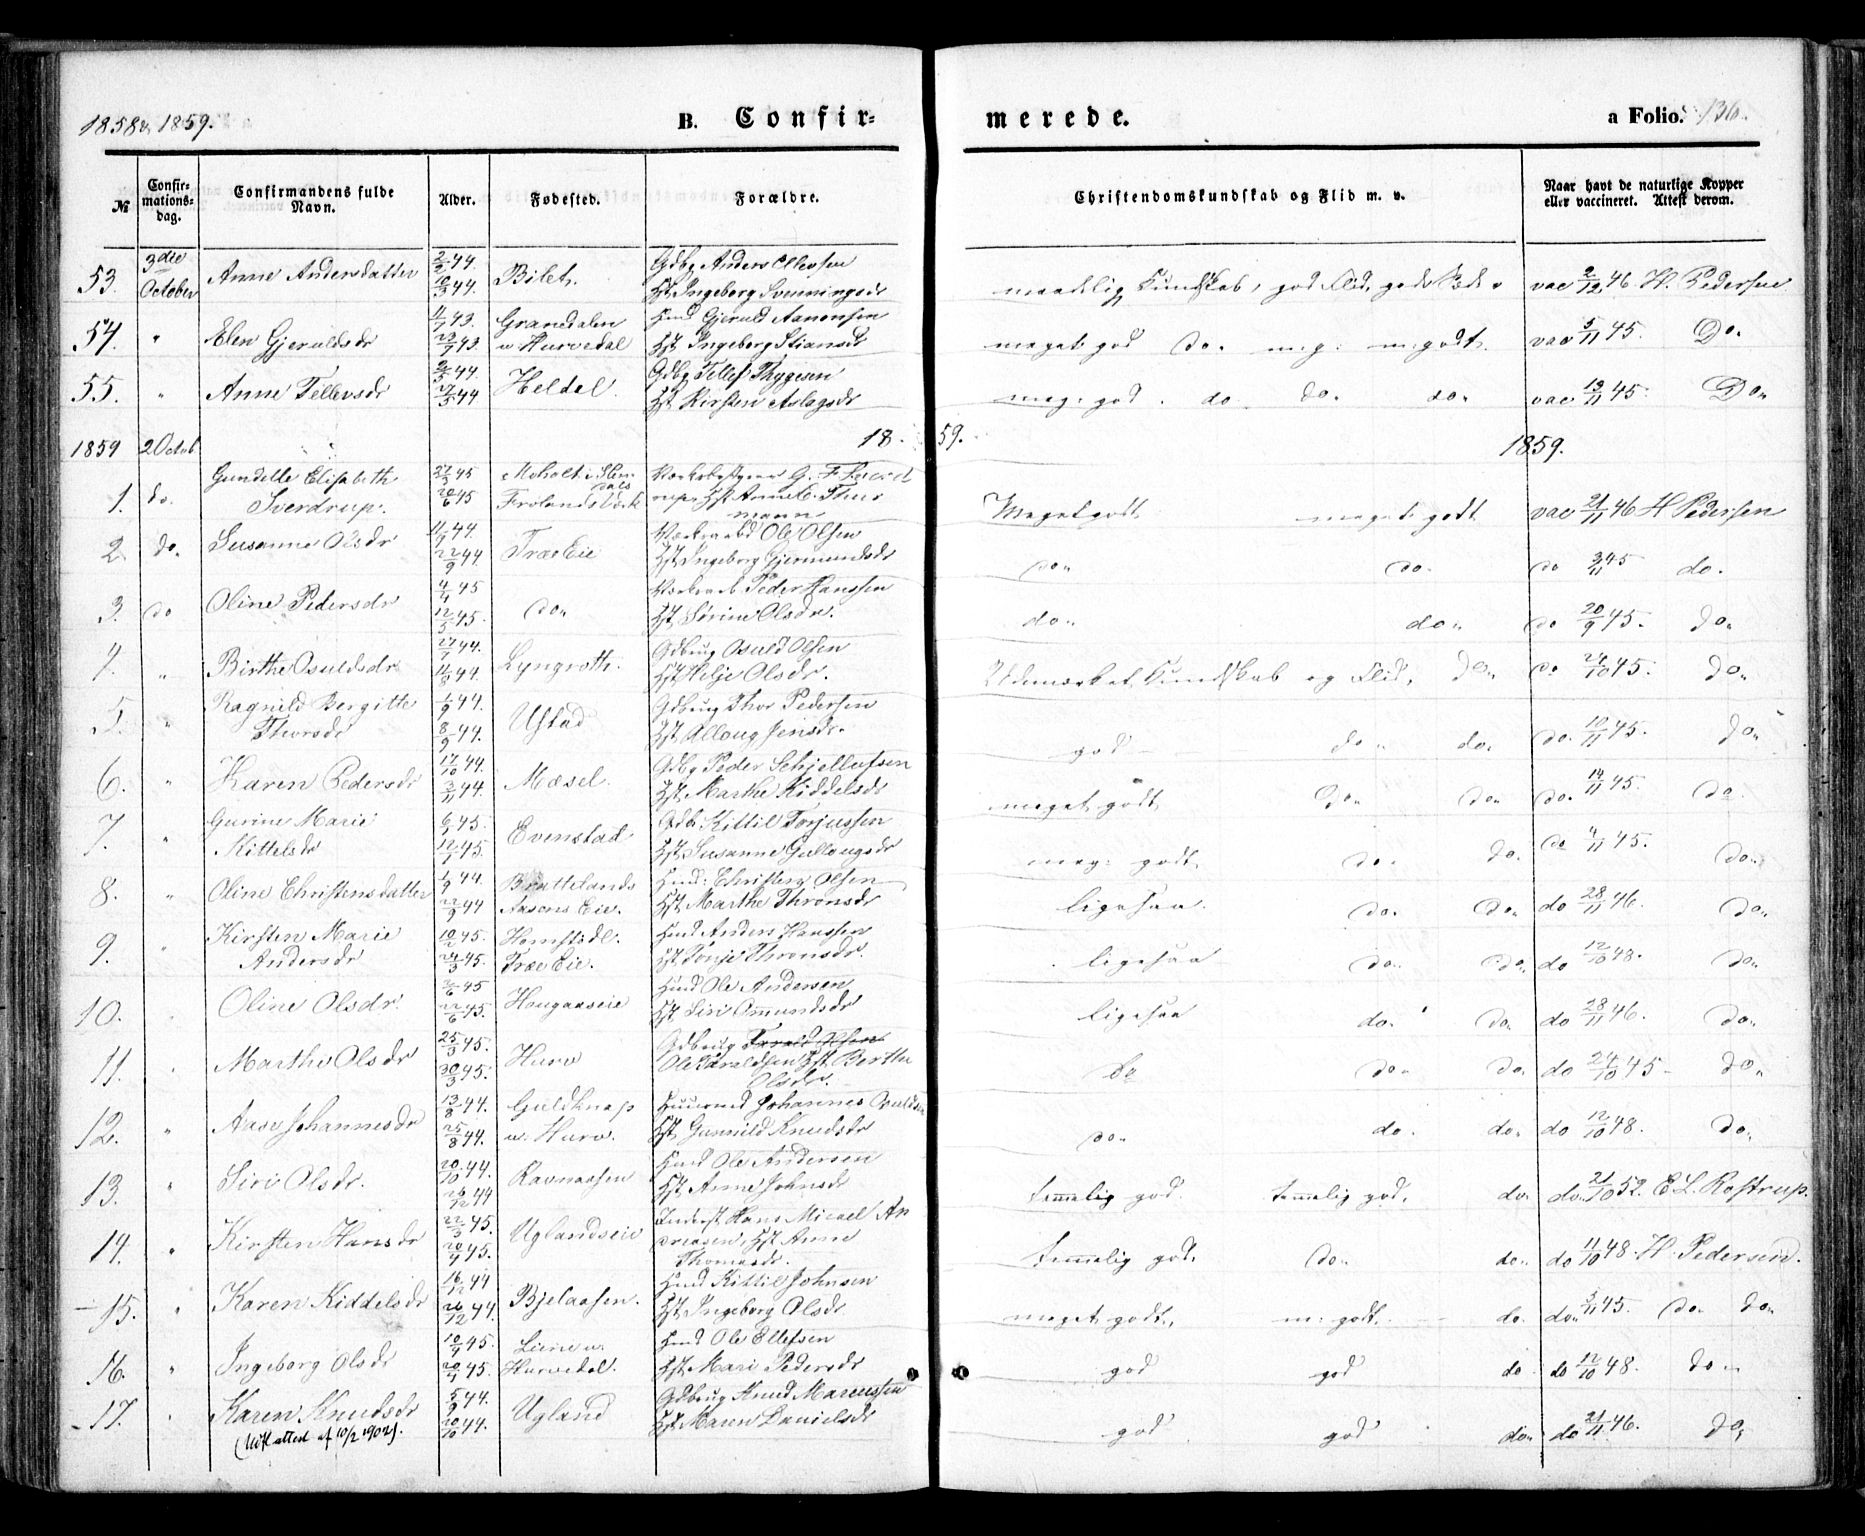 1858 & 1859.
B. Confir=
merede.
a Folio. 136.
№
Confir=
mations=
dag.
Confirmandens fulde
Navn.
Alder.
Fødested.
Forældre.
Christendomskundskab og Flid m. v.
Naar havt de naturlige Kopper
eller vaccineret. Attest derom.
53. 3die October Anne Andersdatter 2/2 44. 10/3 44. Bilet. Gdbg Anders Ellevsen Hst Ingeborg Svenningsdr maadelig Kundskab, god Flid, vac 2/12 46 H. Pedersen
54. " Elen Gjeruldsdr 11/7 43. 23/7 43. Granedalen u. Hurvedal Hmd Gjeruld Aanonsen Hst Ingeborg Stiansdr meget god do. meg: m. godt. vac 5/11 45. Do.
55. " Anne Tellevsdr 44. 27/5 44 Heldal. Gdbg Tellef Thygesen Hst Kirsten Aslagsdr meg: god. do do. do. vac 13/11 45. Do.
1859 2 Octob 18 59. 1859.
1. do. Gundelle Elisabeth Sverdrup. 27/3 45 20/6 45 Moholt i Frolandsværk G. F. Sverd rup, Hst Anne C. Thur mann Meget godt meget godt vac 21/11 46 H Pedersen
2. do. Susanne Olsdr 11/9 44. 22/9 44. Træe Eie Ole Olsen Hst Ingeborg Gjermundsdr do. do. do 3/11 45 do.
3. do Oline Pedersdr 4/4 45 12/5 45. do. Peder Hanssen Hst Sørine Olsdr. do. do. do 20/9 45. do.
4. " Birthe Osuldsdr 27/7 44. 11/8 44. Lyngroth. Gdbrug Osuld Olsen Hst Silje Olsdr. Udmærket Kundskab og Flid, do. do 24/10 45. do.
5. " Ragnild Bergitte Thorsdr 1/9 44. 8/9 44. Ufstad Gdbrug Thor Pedersen Hst Alloug Jensdr. god do. do. do. 10/11 45. do.
6. " Karen Pedersdr 17/10 44. 3/11 44. Mæsel. Gdbg Peder Schjellufsen Hst Marthe Kiddelsdr meget godt do. do. do. 14/11 45. do.
7. " Gurine Marie Kittelsdr 6/1 45. 12/1 45. Evenstad Gdb. Kittil Torjussen Hst Susanne Gullougsdr meg: godt do. do. do 4/11 45. do.
8. " Oline Christensdatter 1/9 44. 22/9 44 Brattelands Aasens Eie. Hmd: Christen Olsen Hst Marthe Thronsdr ligesaa. do. do. do 28/11 46. do.
9. " Kirsten Marie Andersdr 10/2 45. 24/3 45. Homstødl. Træe Eie. Hmd Anders Hanssen Hst Tonje Thronsdr. ligesaa do. do. do 12/10 48. do.
10. " Oline Olsdr. 2/6 45 22/6 45. Hougaaseie Hmd Ole Andersen Hst Siri Omundsdr ligesaa do. do. do 28/11 46. do.
11. " Marthe Olsdr 25/3 45. 30/3 45. Hurv Gdbrug Ole Taraldsen Hst Berthe Olsdr. do do. do. do 24/10 45 do.
12. " Aase Johannesdr 13/8 44. 25/8 44. Guldknap u. Hurv. Huusmd Johannes Osuldsen Hst Gunnild Knudsdr do. do. do. do 12/10 48. do.
13. " Siri Olsdr. 20/10 44. 26/12 44 Ravnaasen Hmd Ole Andersen Hst Anne Johnsdr temmelig god. temmelig god. do do. 21/10 52. E L. Rostrup.
14. " Kirsten Hansdr 22/3 45. 20/4 45. Uglandseie Inderst Hans Micael An dreasen, Hst Anne Thomasdr. temmelig god. do. do. do 11/10 48. H. Pedersen.
15. " Karen Kiddelsdr 16/12 44 26/12 44. Bjelaasen. Hmd Kittil Johnsen Hst Ingeborg Olsdr meget godt, m: godt. do. do. 5/11 45. do do.
16. " Ingeborg Olsdr 10/4 45. 20/4 45. Liene u. Hurvedal. Hmd Ole Ellefsen Hst Mari Pedersdr god god do do 12/10 48. do.
17. " Karen Knudsdr 5/9 44. 20/10 44. Ugland Gdbrug Knud Marcussen Hst Maren Danielsdr god god do. do 21/11 46. do.
(Utst attest af 10/2 1904).